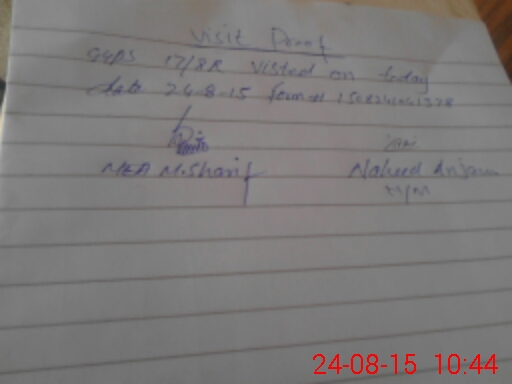 Visit Proof
GGPS 17/8R Visted on today
date 24-8-15 form #
MEA M.Sharif
Naheed Anjum
H/M
24-08-15 10:44